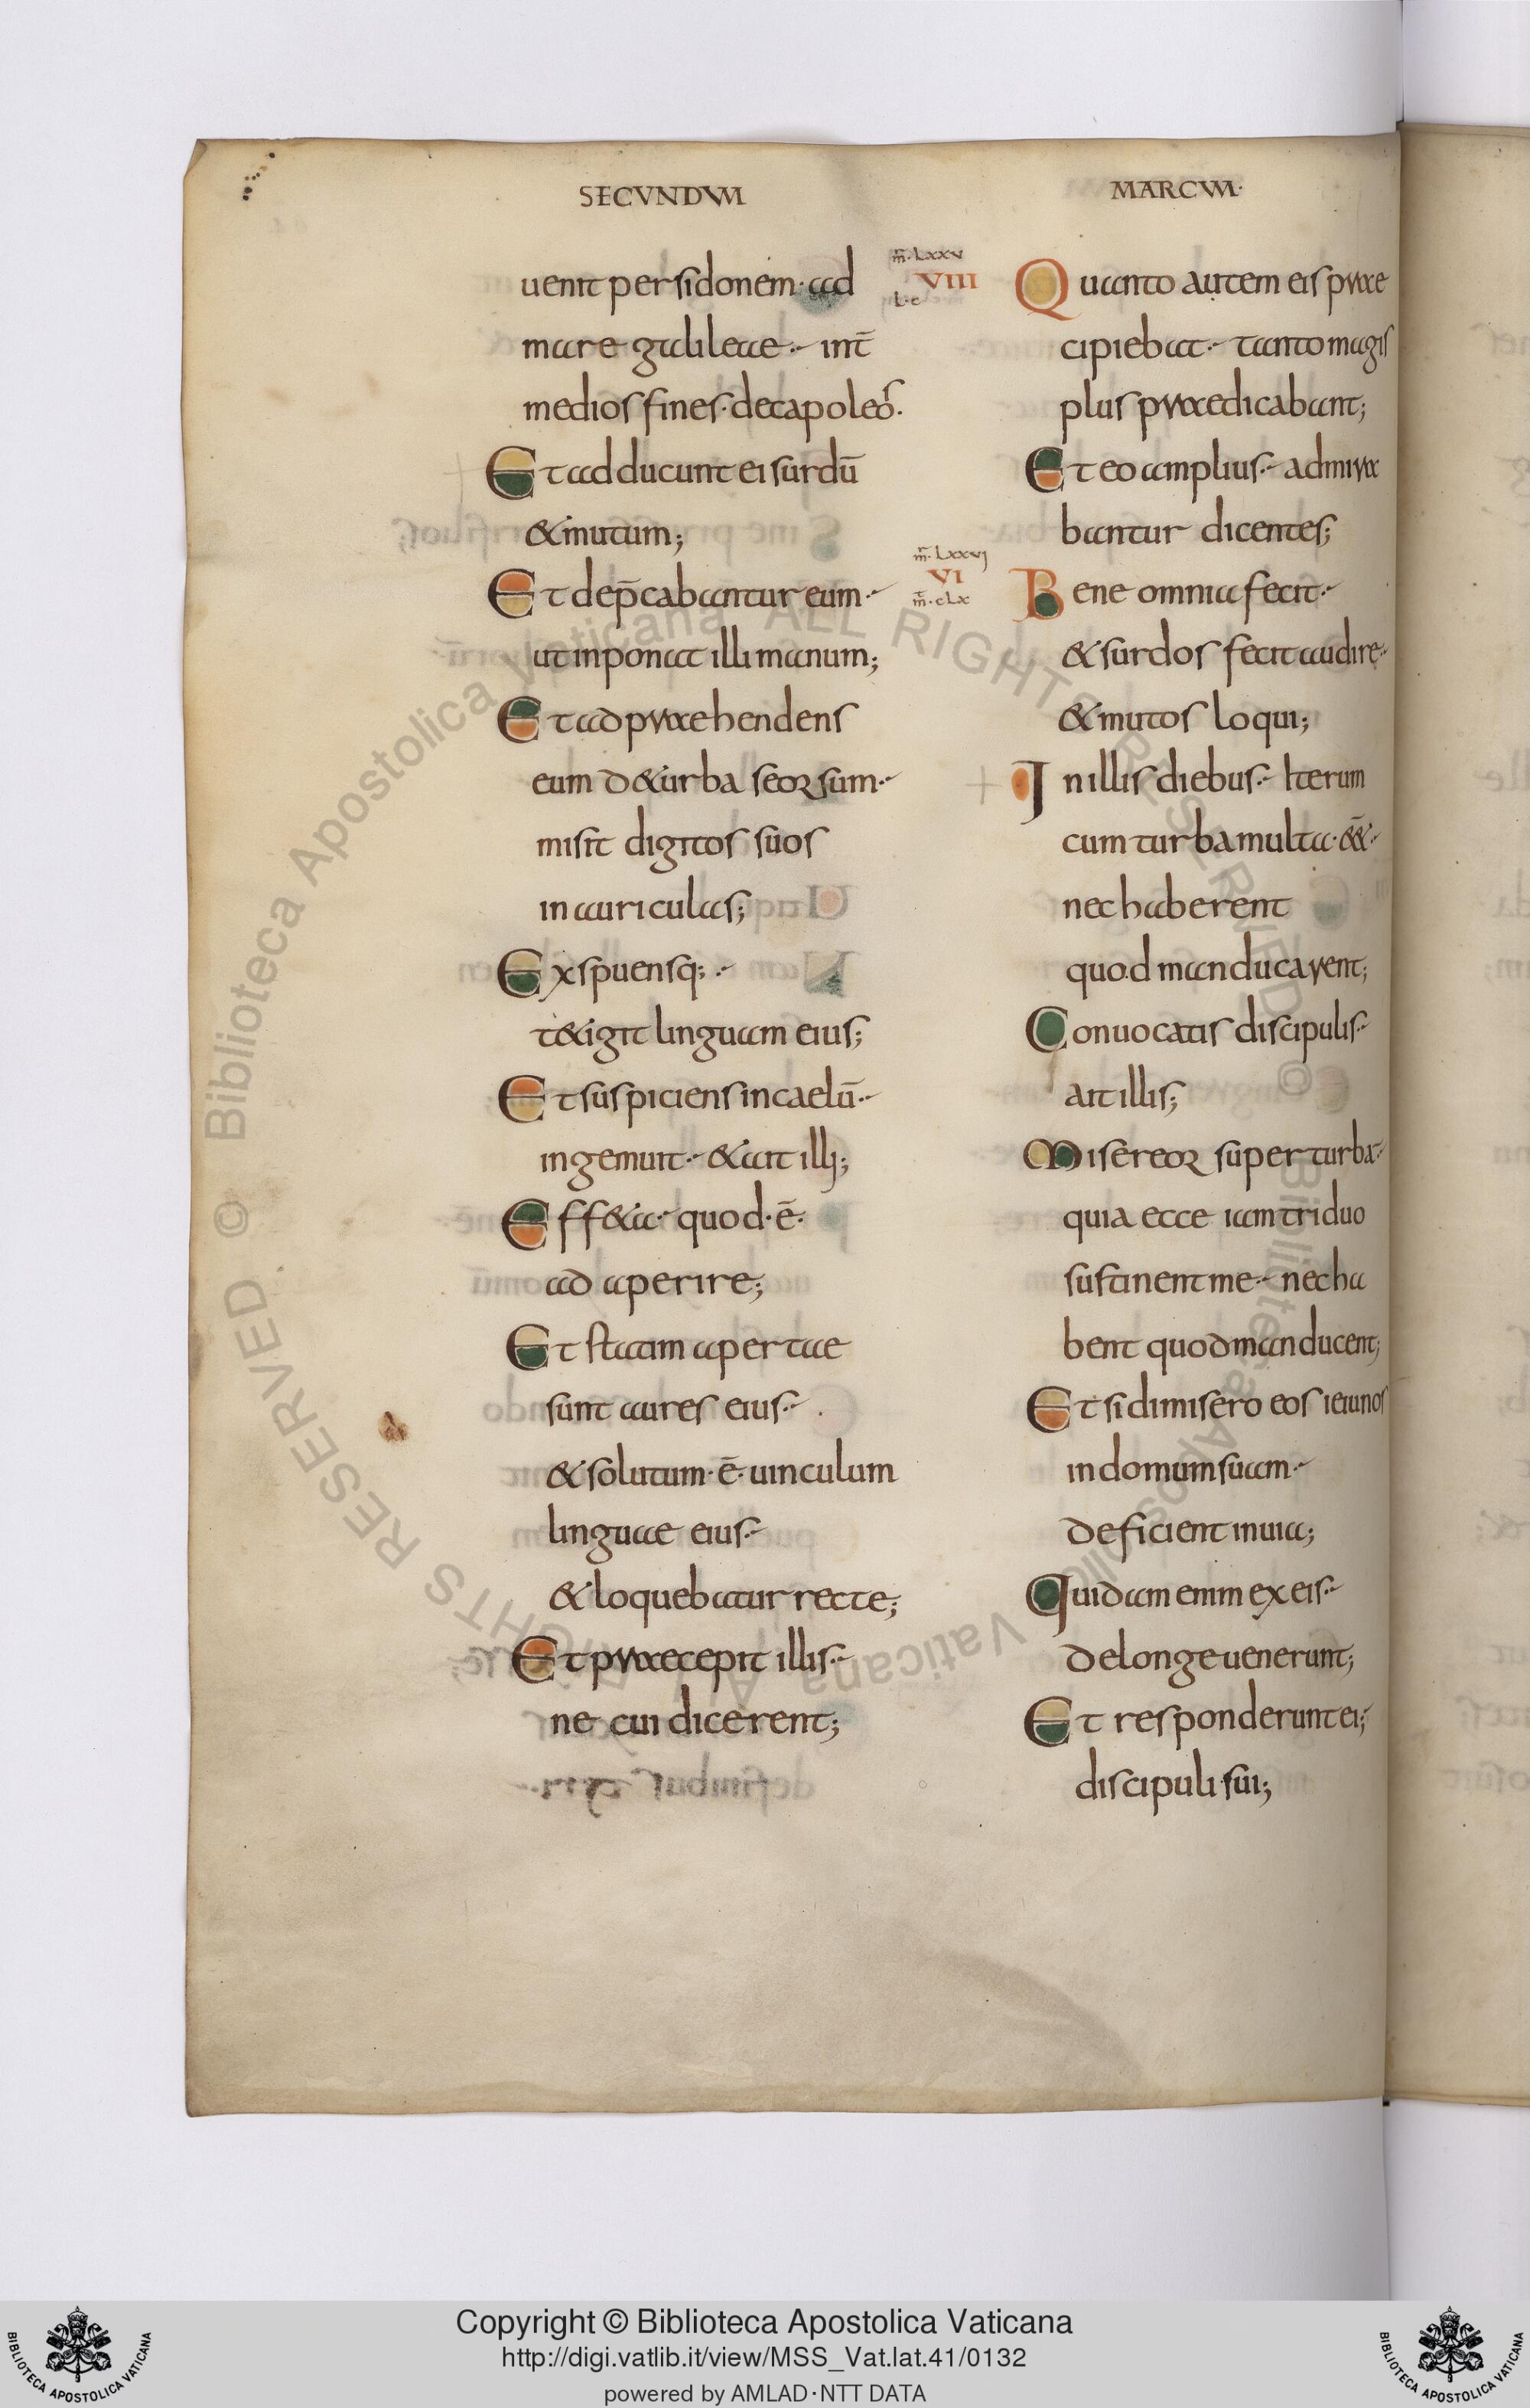 SECVNDVM
uenit per sidonem· ad
mare galileae· int̄
medios fines· decapoleos·
Et adducunt ei surdū
& mutum;
Et dep̄cabantur eum·
ut inponat illi manum;
Et adpraehendens
eum d& urba seorsum·
misit digitos suos
in auriculas;
Exspuensq;·
t&igit linguam eius;
Et suspiciens in caelū·
ingemuit· & ait illi;
Eff&a· quod· ē·
adaperire;
Et statim apertae
sunt aures eius·
& solutum· ē· uinculum
linguae eius·
& loquebatur recte;
Et praecepit illis·
ne cui dicerent;
MARCVM·
m̄· Lxxv
VIII
Quanto autem eis prae
cipiebat· tanto magis
plus praedicabant;
Et eo amplius· admira
bantur dicentes;
m̄· Lxxvj
VI
m̄· cLx
Bene omnia fecit·
& surdos fecit audire·
& mutos loqui;
In illis diebus· Iterum
cum turba multa· &&·
nec haberent
quod manducarent;
Conuocatis discipulis·
ait illis;
Misereor super turba·
quia ecce iam triduo
sustinent me· nec ha
bent quod manducent;
Et si dimisero eos ieiunos
in domum suam·
deficient in uia;
Quidam enim ex eis·
de longe uenerunt;
Et responderunt ei;
discipuli sui;
© Biblioteca Apostolica Vaticana ALL RIGHTS RESERVED
© Biblioteca Apostolica Vaticana ALL RIGHTS RESERVED
Copyright © Biblioteca Apostolica Vaticana
http://digi.vatlib.it/view/MSS_Vat.lat.41/0132
powered by AMLAD·NTT DATA
BIBLIOTECA APOSTOLICA VATICANA
BIBLIOTECA APOSTOLICA VATICANA